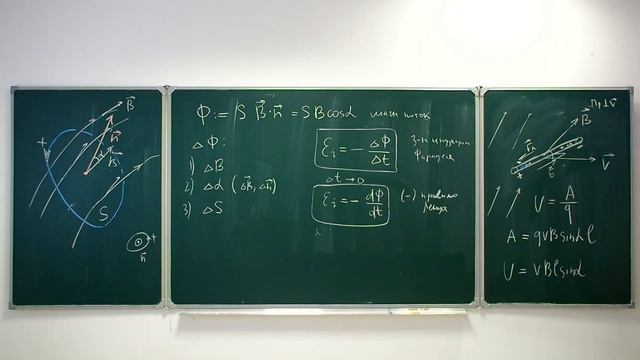 B⃗
n⃗
B⃗
+
S
+
n⃗
Φ := S B⃗·n⃗ = S B cosα магн поток
ΔΦ:
1) ΔB
2) Δα (ΔB⃗, Δn⃗)
3) ΔS
Ɛᵢ = − ΔΦ/Δt
З-н индукции
Фарадея
Δt → 0
Ɛᵢ = − dΦ/dt
(−) правило
Ленца
B⃗
V⃗
U = A/q
A = qvB sinα l
U = vBl sinα